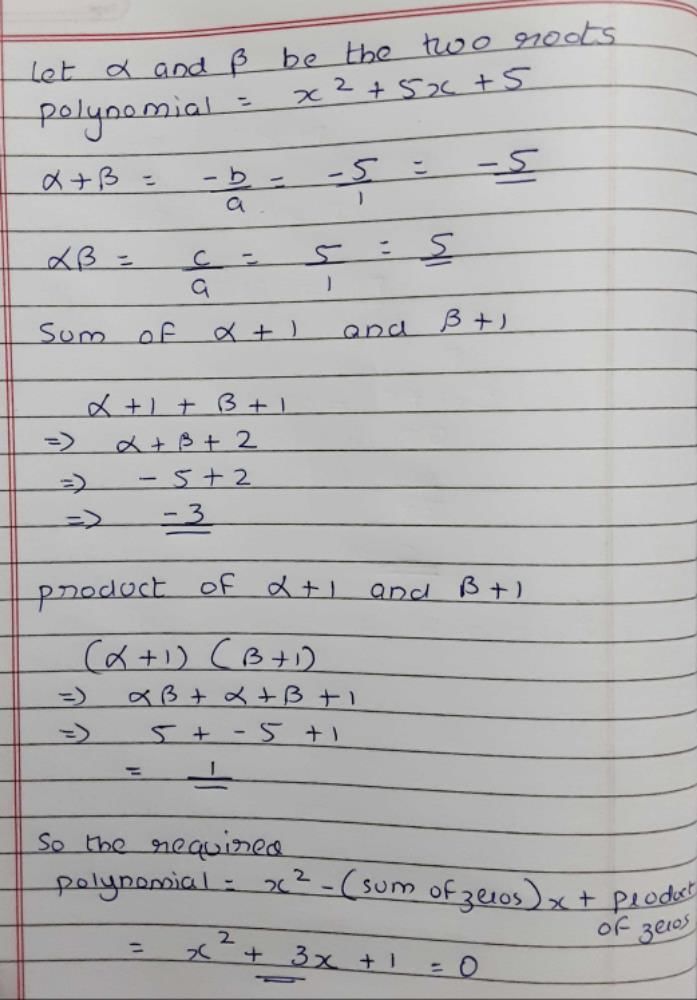 Let α and β be the two roots
polynomial = x² + 5x + 5
α + β = -b/a = -5/1 = -5
αβ = c/a = 5/1 = 5
Sum of α + 1 and β + 1
α + 1 + β + 1
=> α + β + 2
=> - 5 + 2
=> -3
product of α + 1 and β + 1
(α + 1) (β + 1)
=> αβ + α + β + 1
=> 5 + - 5 + 1
= 1
So the required
polynomial = x² - (sum of zeros)x + product
of zeros
= x² + 3x + 1 = 0